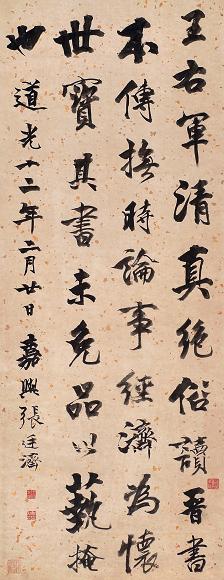 王右軍清真絶俗讀晋書
本傳撫時論事經濟為懷
世寶其書未免品以藝掩
也
道光十二年二月廿日嘉興張廷濟